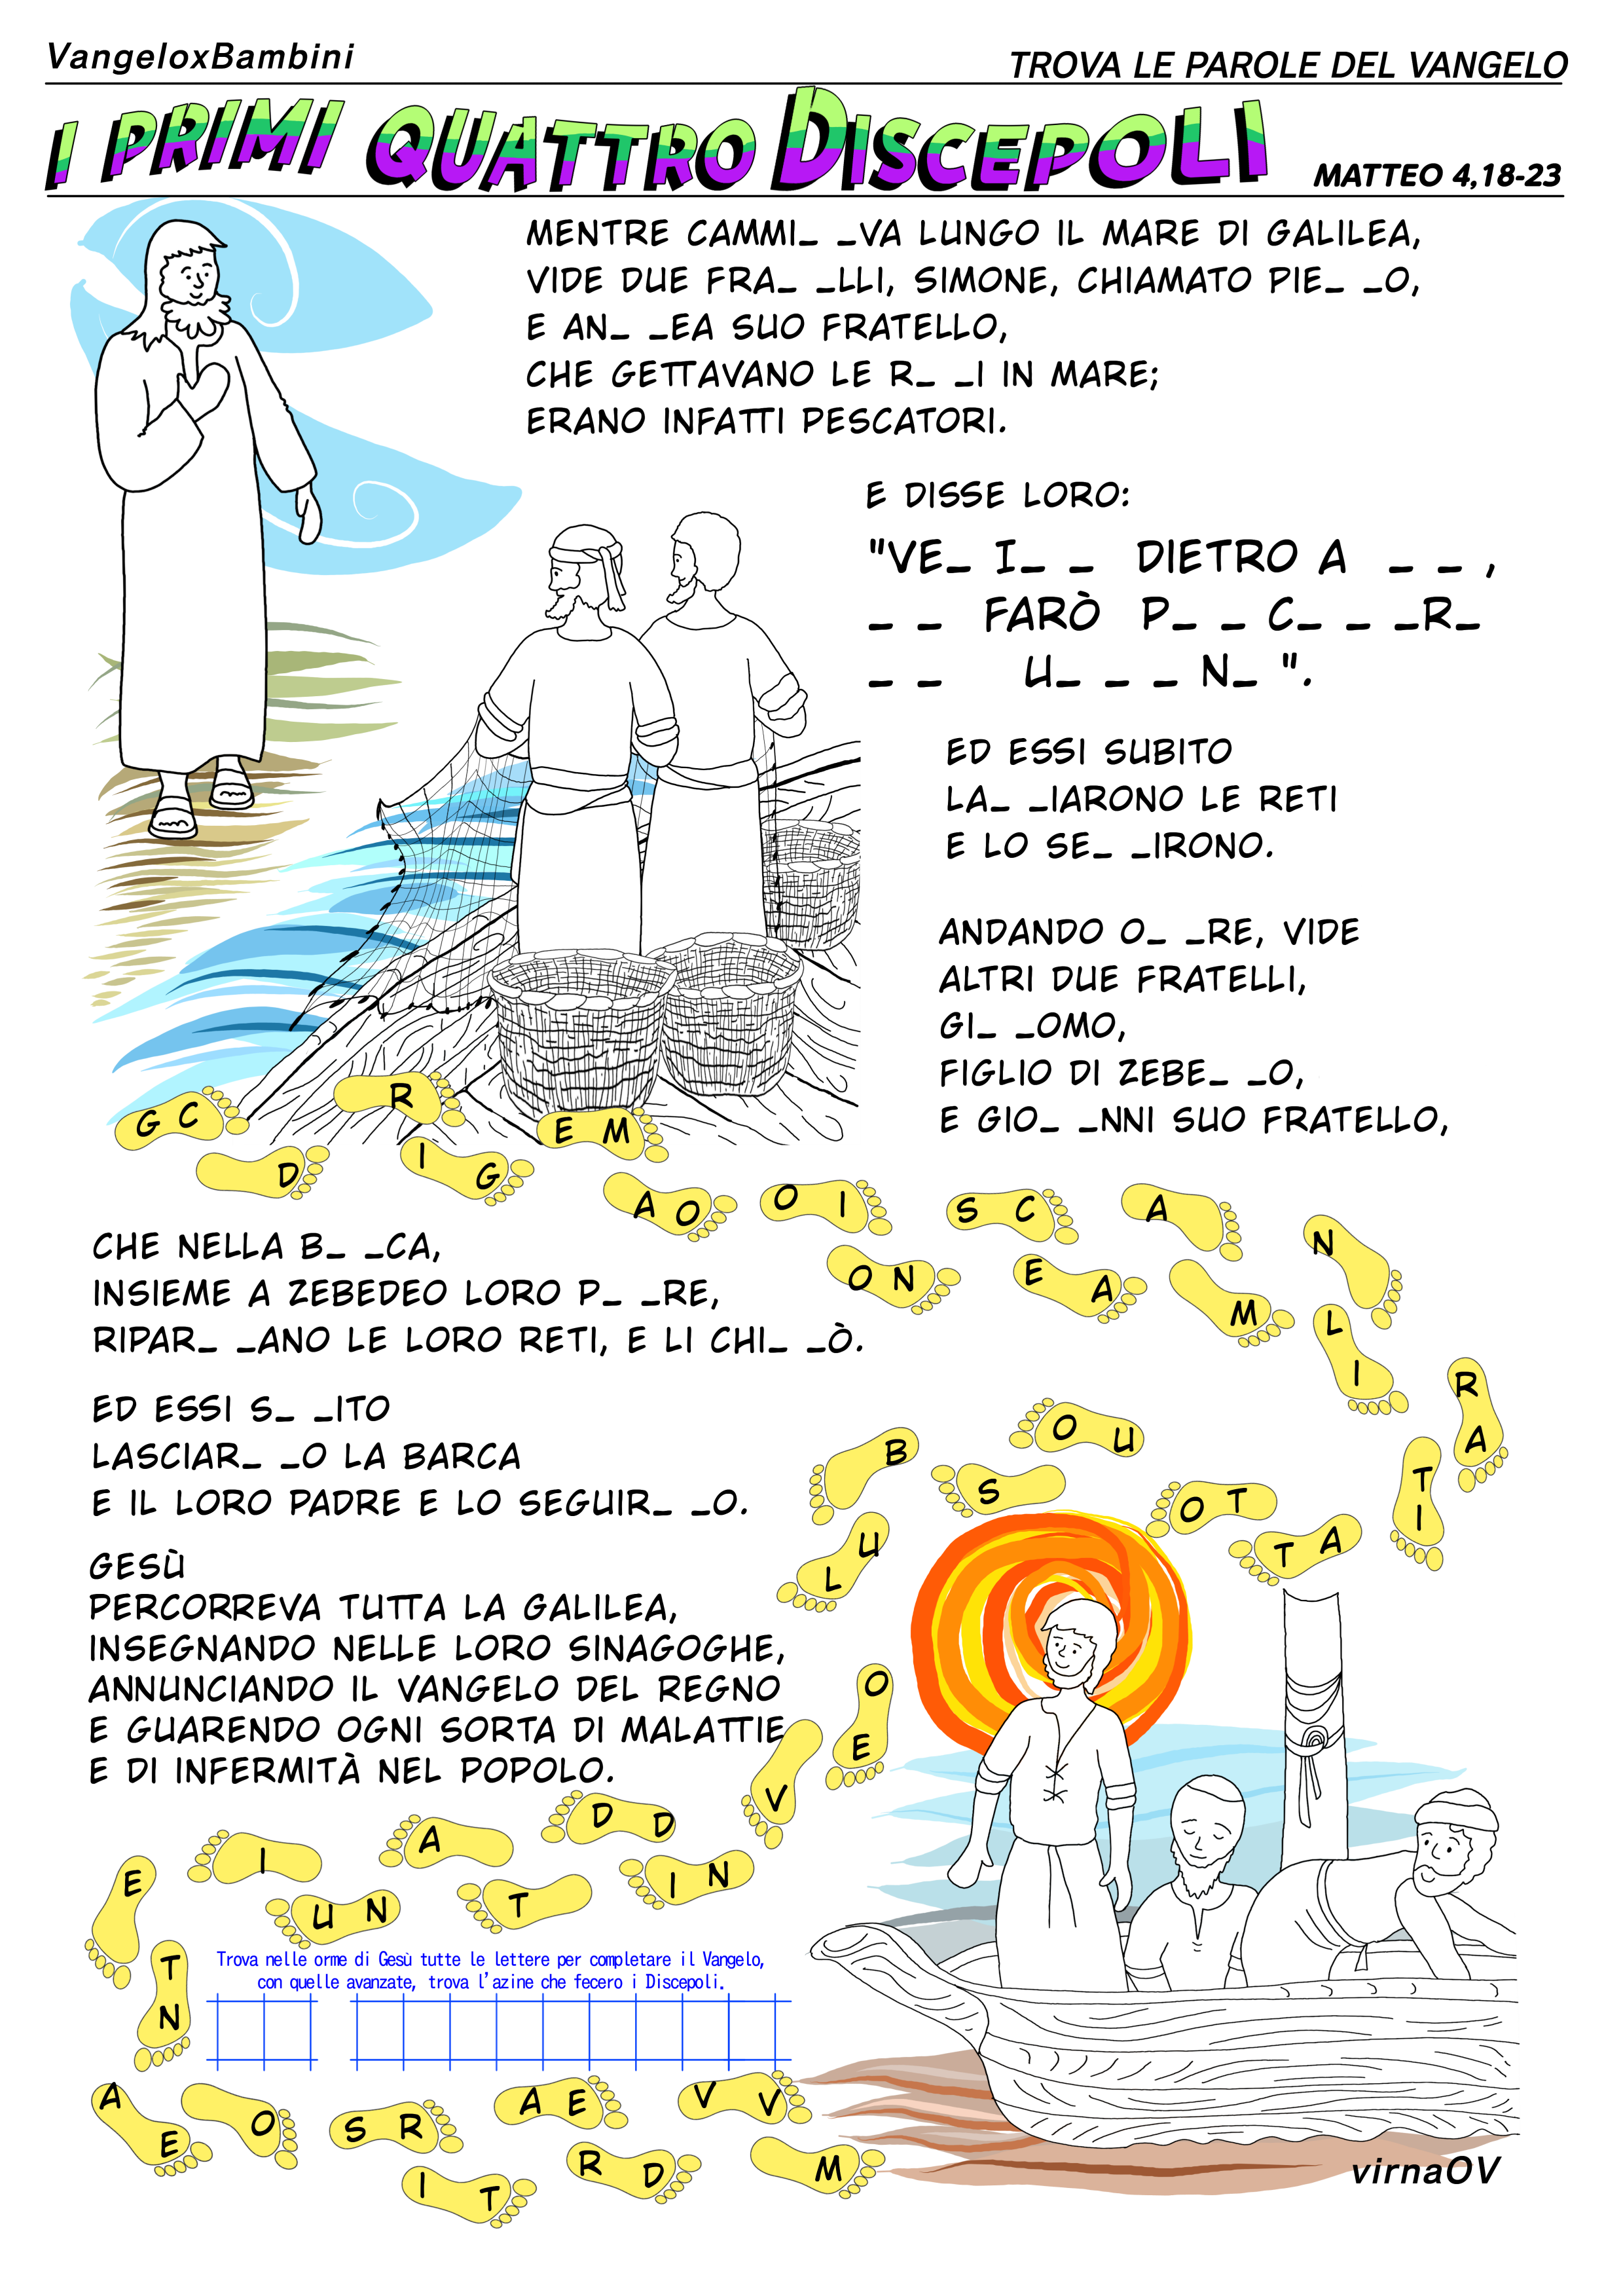 VangeloxBambini
TROVA LE PAROLE DEL VANGELO
I PRIMI QUATTRO DISCEPOLI
MATTEO 4,18-23
MENTRE CAMMI_ _VA LUNGO IL MARE DI GALILEA,
VIDE DUE FRA_ _LLI, SIMONE, CHIAMATO PIE_ _O,
E AN_ _EA SUO FRATELLO,
CHE GETTAVANO LE R_ _I IN MARE;
ERANO INFATTI PESCATORI.
E DISSE LORO:
"VE_ I_ _ DIETRO A _ _ ,
_ _ FARÒ P_ _ C_ _ _R_
_ _ U_ _ _ N_ ".
ED ESSI SUBITO
LA_ _IARONO LE RETI
E LO SE_ _IRONO.
ANDANDO O_ _RE, VIDE
ALTRI DUE FRATELLI,
GI_ _OMO,
FIGLIO DI ZEBE_ _O,
E GIO_ _NNI SUO FRATELLO,
G C
R
E M
D
I G
A O
O I
S C
A
N
O N
E A
M
L I
R A
CHE NELLA B_ _CA,
INSIEME A ZEBEDEO LORO P_ _RE,
RIPAR_ _ANO LE LORO RETI, E LI CHI_ _Ò.
ED ESSI S_ _ITO
LASCIAR_ _O LA BARCA
E IL LORO PADRE E LO SEGUIR_ _O.
B
O U
S
O T
T I
T A
L U
GESÙ
PERCORREVA TUTTA LA GALILEA,
INSEGNANDO NELLE LORO SINAGOGHE,
ANNUNCIANDO IL VANGELO DEL REGNO
E GUARENDO OGNI SORTA DI MALATTIE
E DI INFERMITÀ NEL POPOLO.
O E
V
D D
A
I
E
I N
T
U N
T N
Trova nelle orme di Gesù tutte le lettere per completare il Vangelo,
con quelle avanzate, trova l'azine che fecero i Discepoli.
A E
O
S R
A E
V V
I T
R D
M
virnaOV